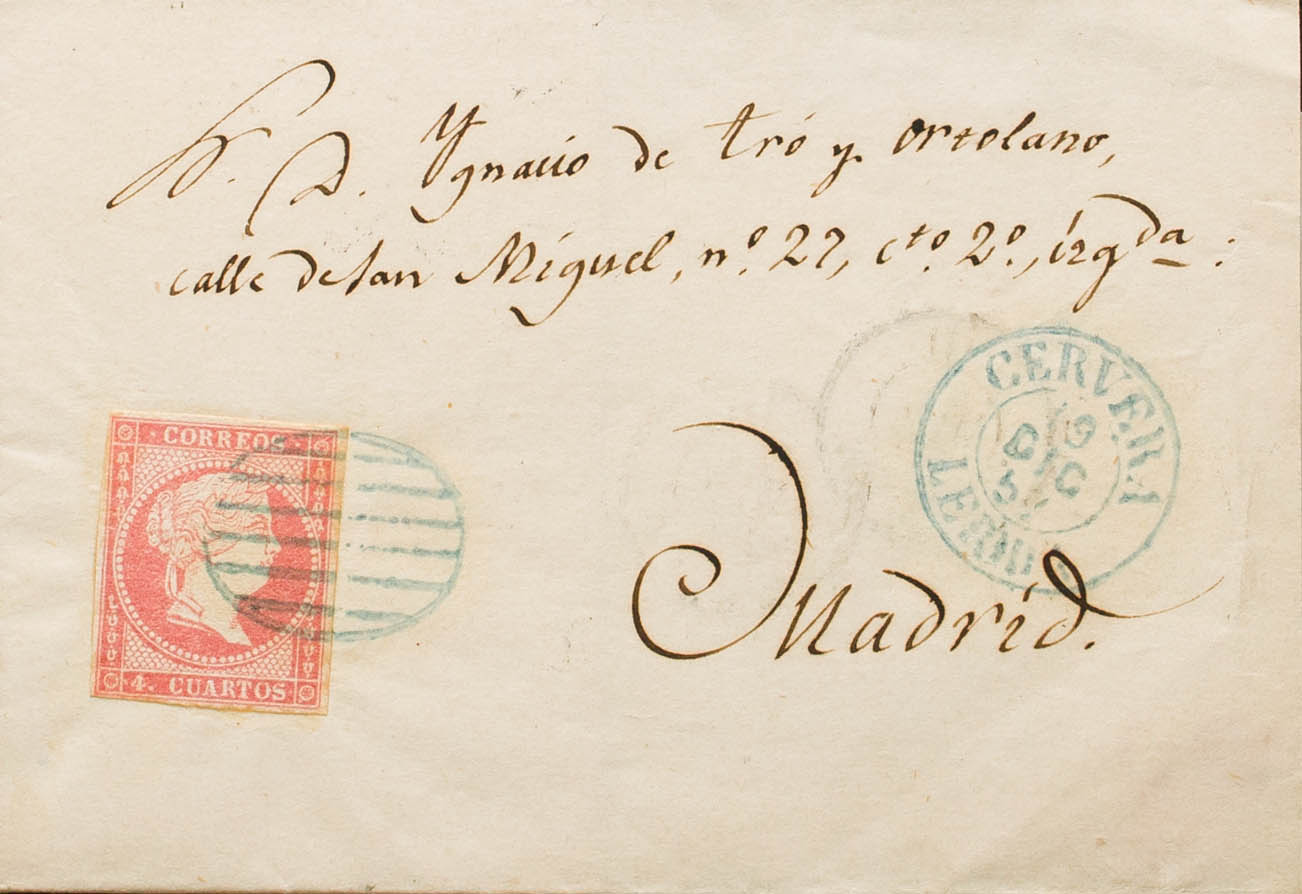 Sr. D. Ygnacio de Tró y Ortolano,
calle de San Miguel, nº. 27, cto. 2º., izqda:
CORREOS
4. CUARTOS
CERVERA
DIC
LERIDA
Madrid.